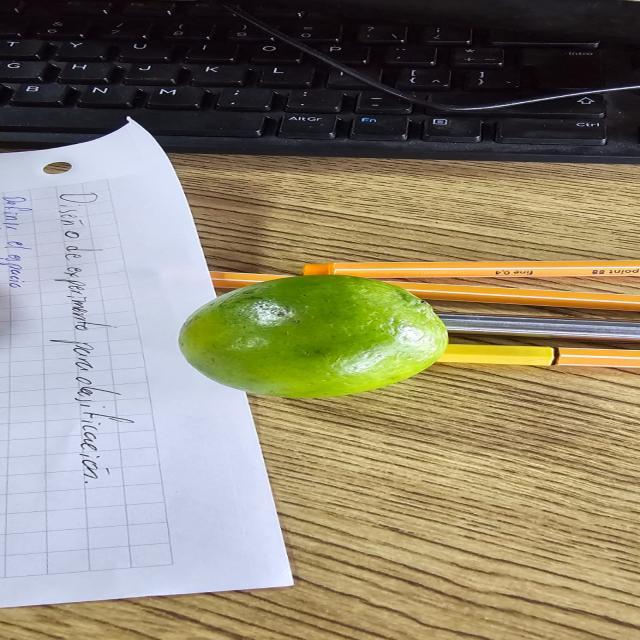 T Y U I O P
G H J K L
B N M
AltGr Fn Ctrl
Diseño de experimento para clasificación.
Definir el espacio
fine 0,4
point 88